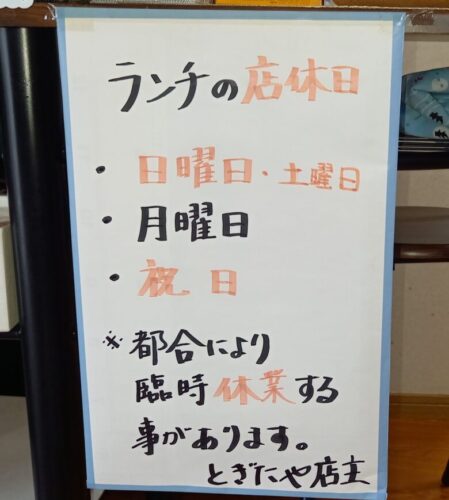 ランチの店休日
・日曜日・土曜日
・月曜日
・祝日
※都合により
臨時休業する
事があります。
とぎたや店主